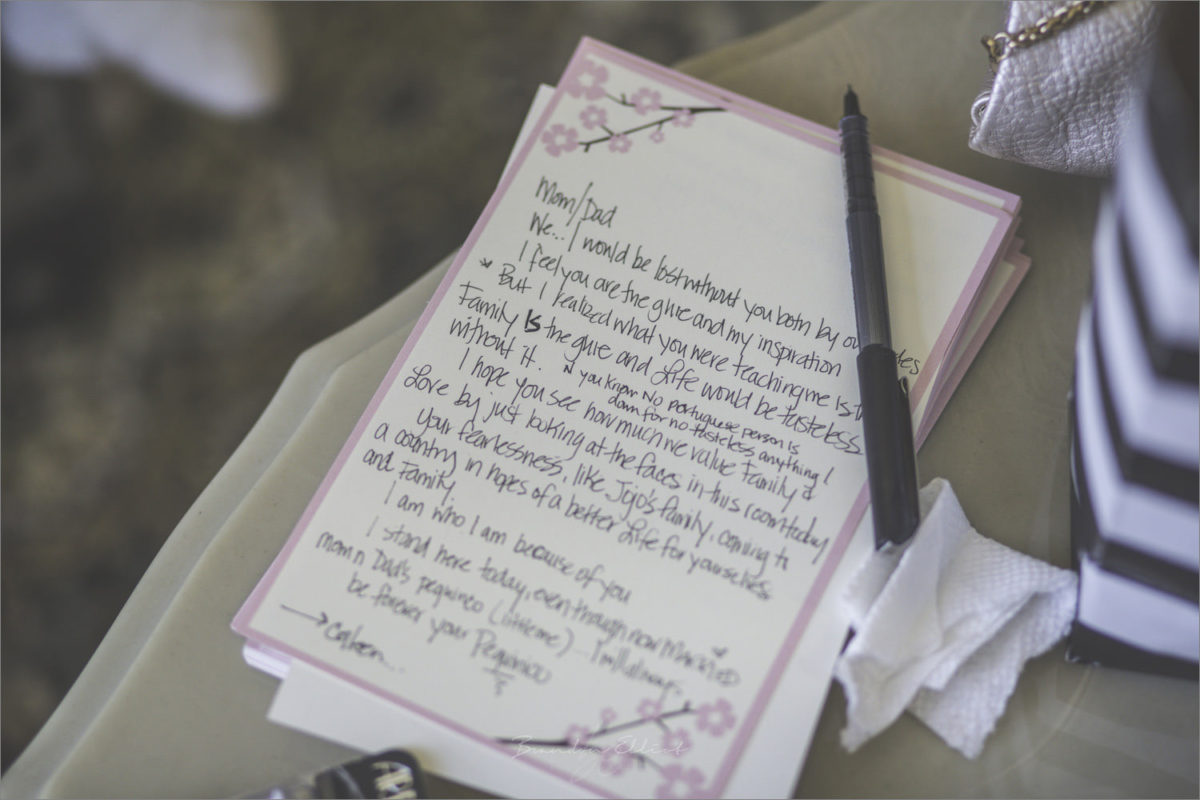 Mom/Dad
We... I would be lost without you both by our sides
I feel you are the glue and my inspiration
* But I realized what you were teaching me is th
Family IS the glue and Life would be tasteless
without it. N you know No Portuguese person is
down for no tasteless anything!
I hope you see how much we value Family &
Love by just looking at the faces in this room today
your fearlessness, like Jojo's family, coming to
a country in hopes of a better Life for yourselves
and Family.
I am who I am because of you
I stand here today, even though now Married
mom n Dad's pequineo (little me) I'll always
be forever your Pequineo
Brandon Elliot